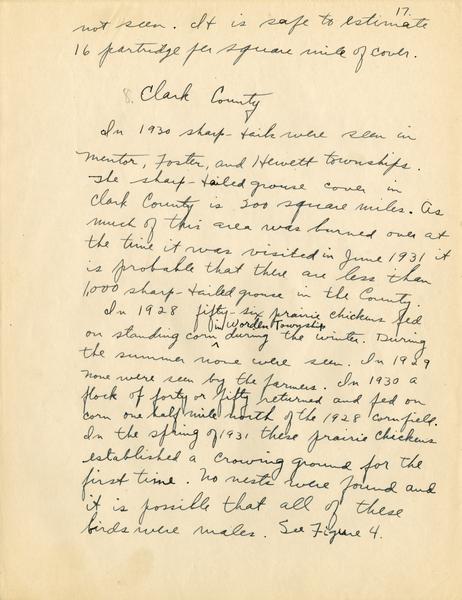 17.
not seen. It is safe to estimate
16 partridge per square mile of cover.
8. Clark County
In 1930 sharp-tails were seen in
Mentor, Foster, and Hewett townships.
The sharp-tailed grouse cover in
Clark County is 200 square miles. As
much of this area was burned over at
the time it was visited in June 1931 it
is probable that there are less than
1,000 sharp-tailed grouse in the County.
In 1928 fifty-six prairie chickens fed
in Worden Township
on standing corn ^ during the winter. During
the summer none were seen. In 1929
none were seen by the farmers. In 1930 a
flock of forty or fifty returned and fed on
corn one half mile north of the 1928 cornfield.
In the spring of 1931 these prairie chickens
established a crowing ground for the
first time. No nests were found and
it is possible that all of these
birds were males. See Figure 4.